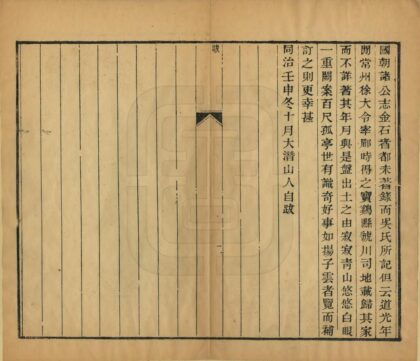 國朝諸公志金石者都未著錄而吳氏所記但云道光年
間常州徐大令宰郿時得之寶鷄縣虢川司地載歸其家
而不詳著其年月與是盤出土之由寂寂青山悠悠白眼
一重闕案百尺孤亭世有識奇好事如揚子雲者覽而補
訂之則更幸甚
同治壬申冬十月大潛山人自跋
跋